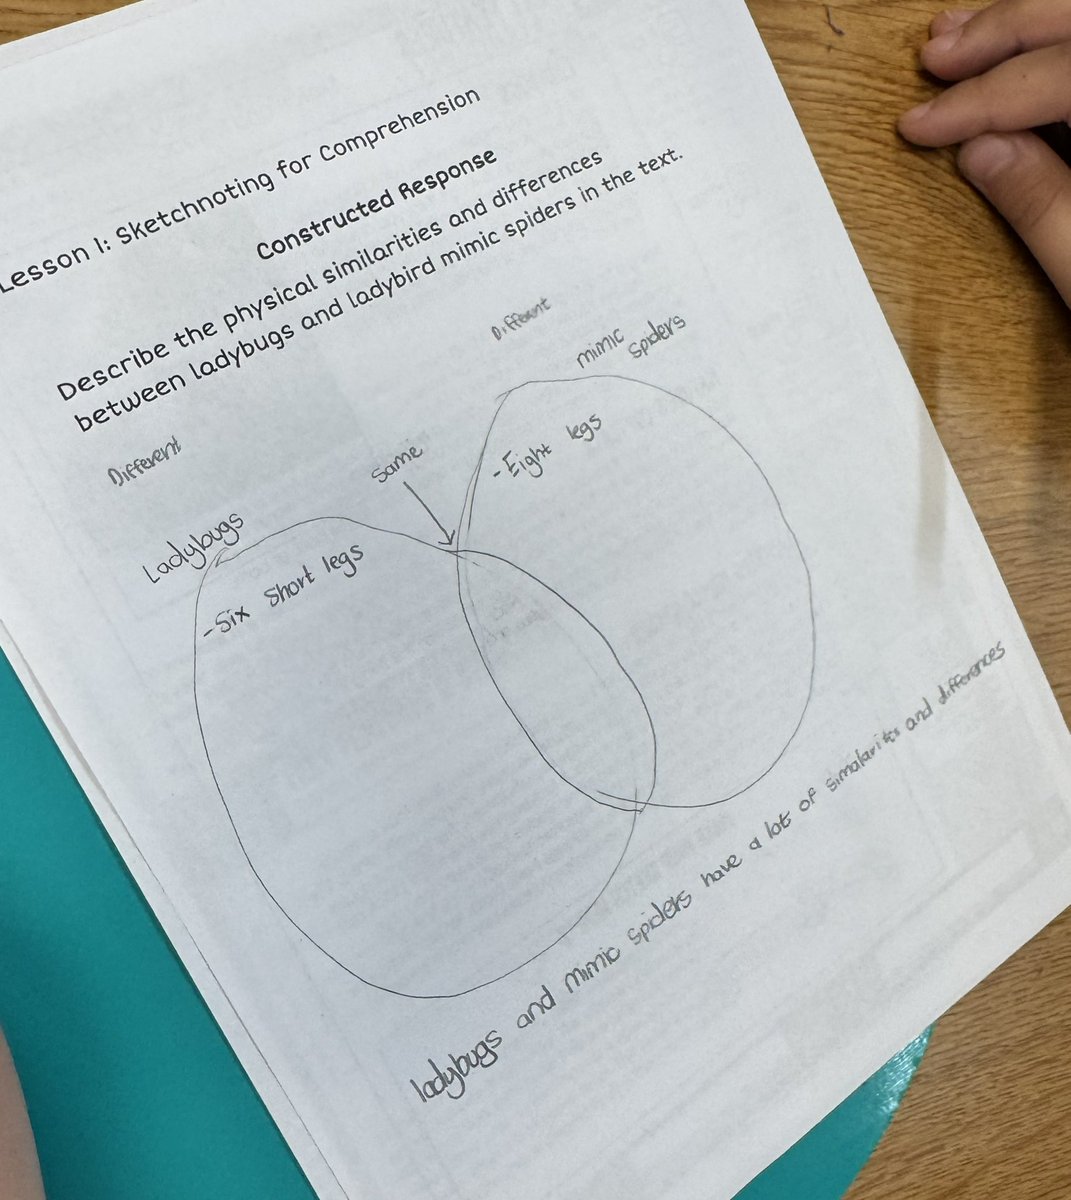 Lesson 1: Sketchnoting for Comprehension
Constructed Response
Describe the physical similarities and differences
between ladybugs and ladybird mimic spiders in the text.
Different
mimic
spiders
Different
Same
- Eight legs
Ladybugs
- Six Short legs
ladybugs and mimic spiders have a lot of simalarites and differences